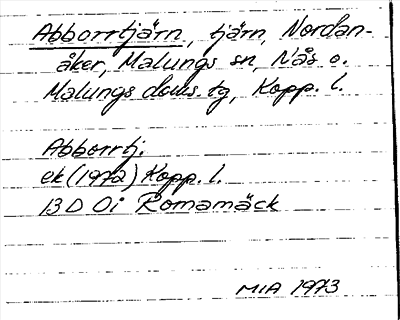 Abborrtjärn, tjärn, Nordan-
åker, Malungs sn, Nås o.
Malungs doms. tg, Kopp. l.
Abborrtj.
ek (1972) Kopp. l.
13 D 0i Romamäck
MIA 1973